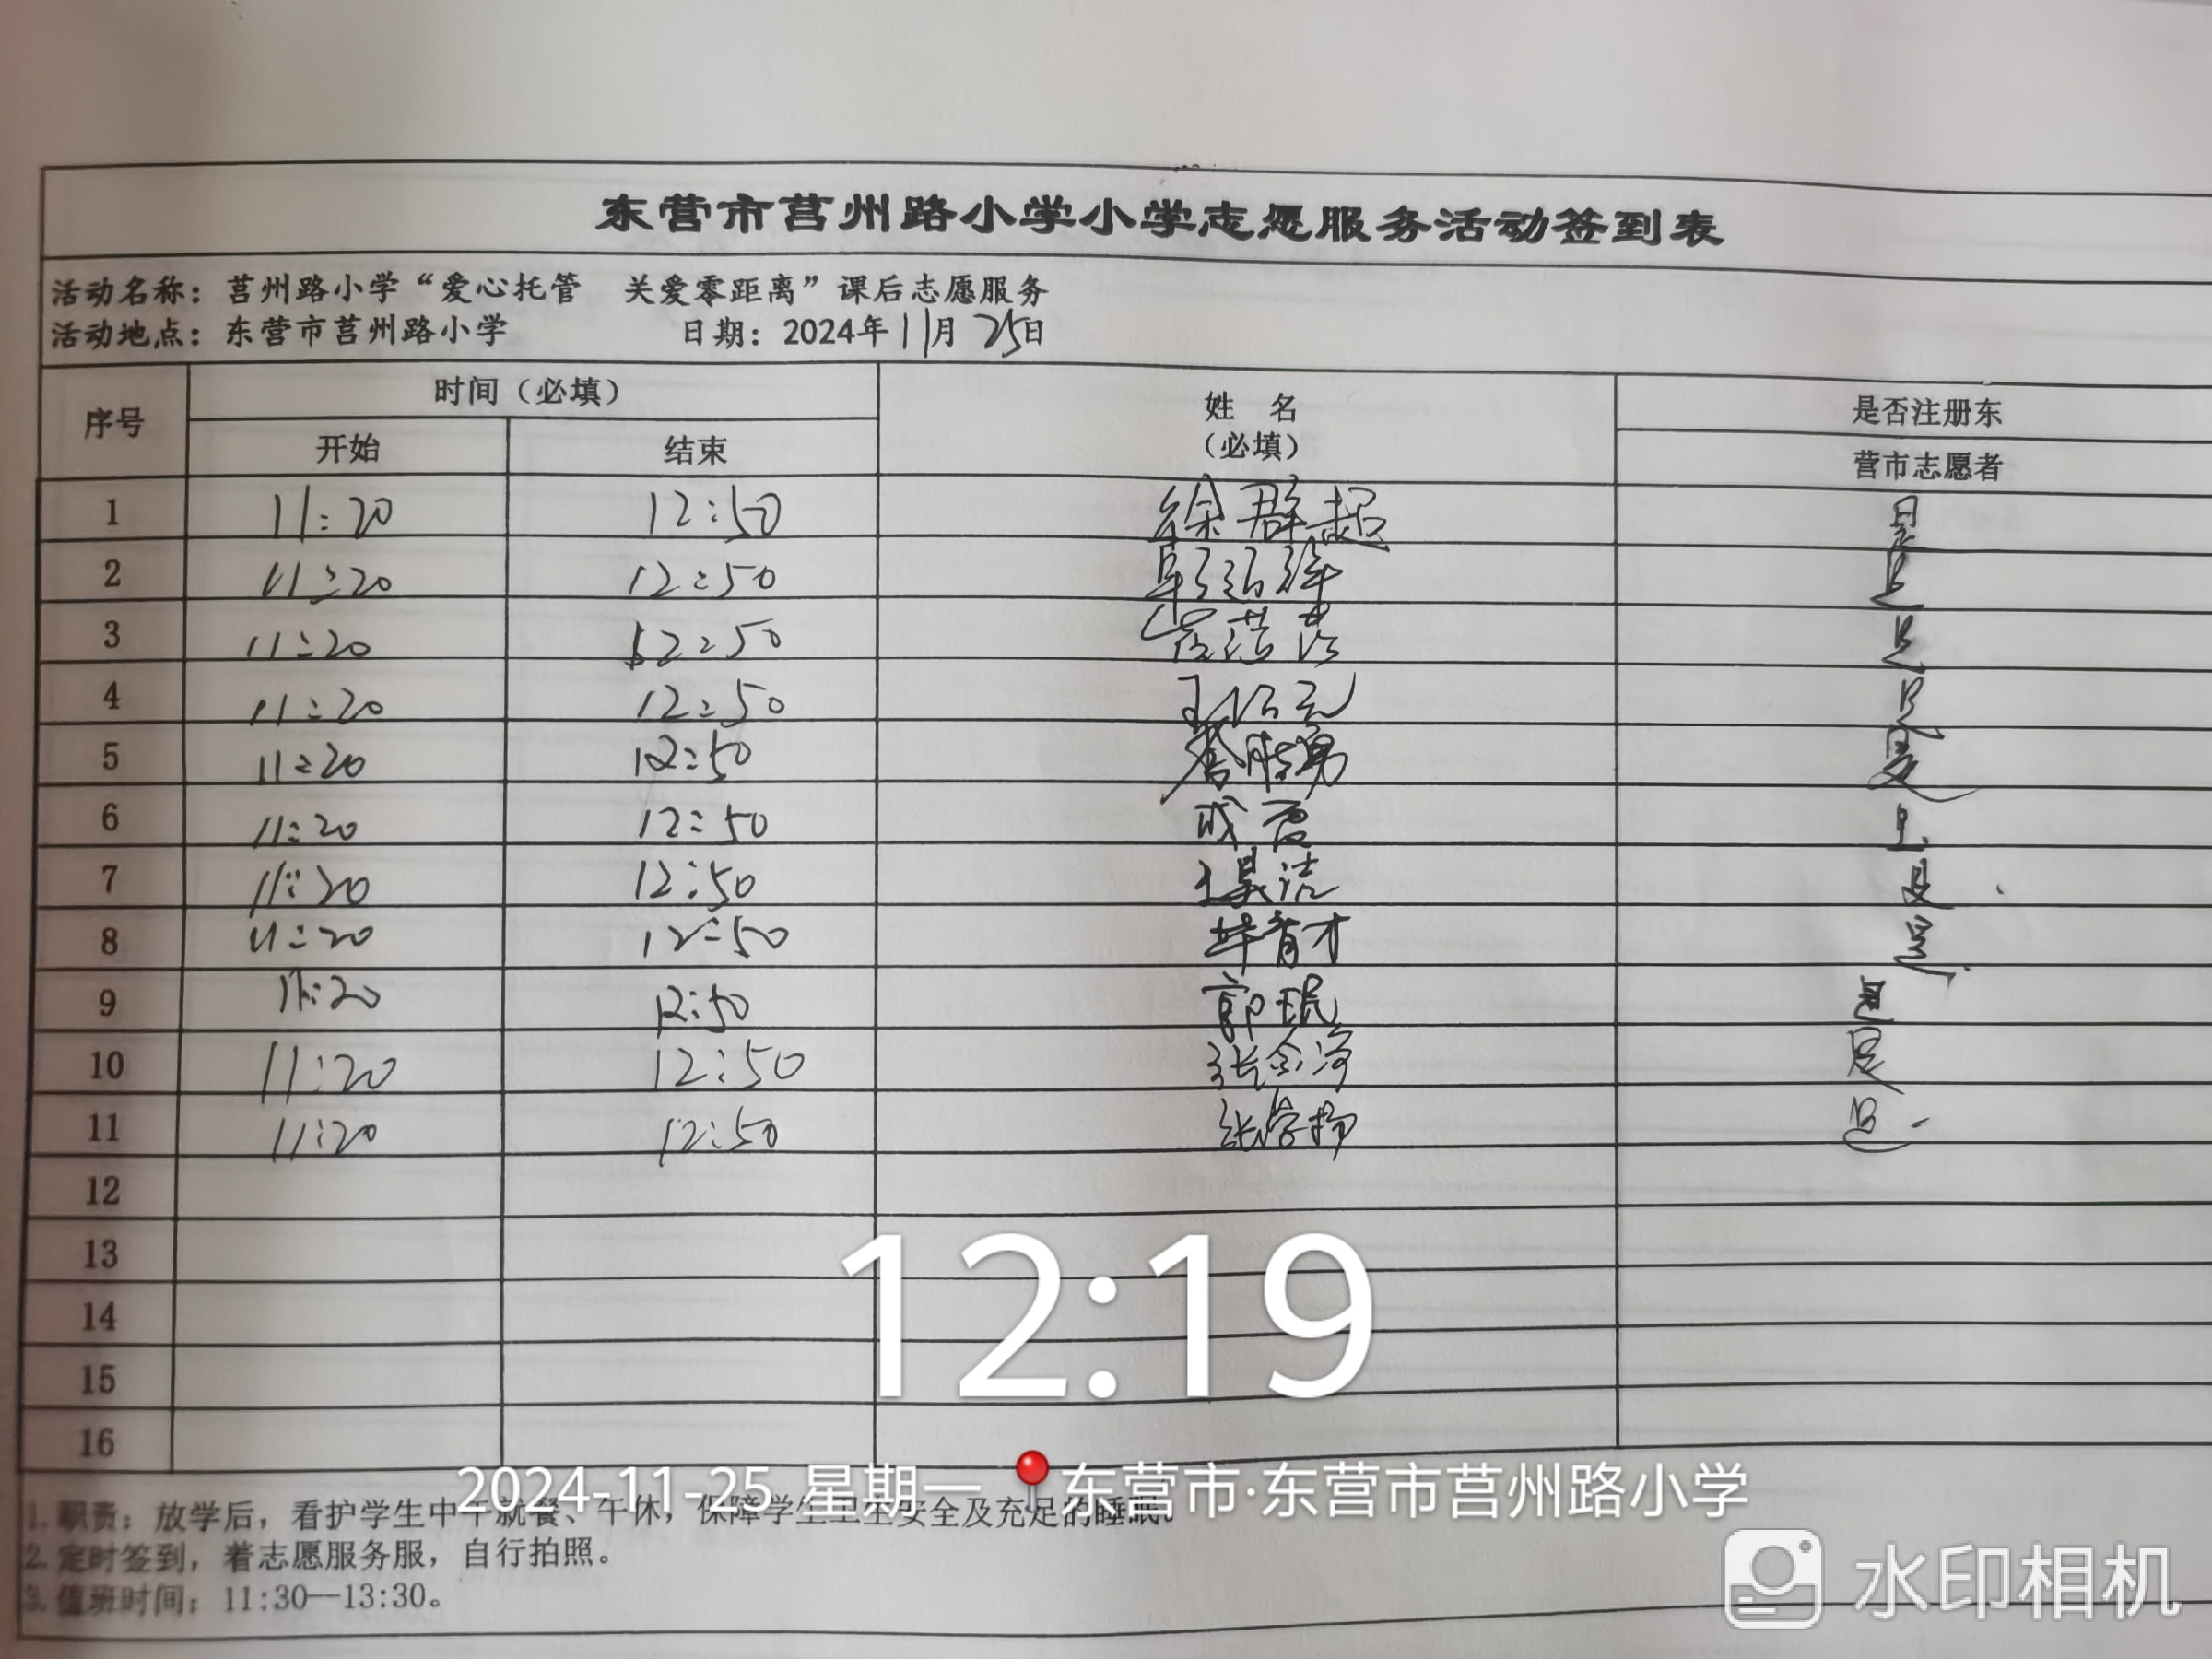 东营市莒州路小学小学志愿服务活动签到表
活动名称：莒州路小学“爱心托管　关爱零距离”课后志愿服务
活动地点：东营市莒州路小学　日期：2024年11月25日
序号 时间（必填） 姓 名（必填） 是否注册东
开始 结束 营市志愿者
1 11:20 12:50 徐群超 是
2 11:20 12:50 是
3 11:20 12:50 是
4 11:20 12:50 是
5 11:20 12:50 是
6 11:20 12:50 是
7 11:20 12:50 王昊洁 是
8 11:20 12:50 毕育才 是
9 11:20 12:50 郭珉 是
10 11:20 12:50 是
11 11:20 12:50 是
12
13
14
15
16
12:19
2024-11-25 星期一 东营市·东营市莒州路小学
1.职责：放学后，看护学生中午就餐、午休，保障学生卫生安全及充足的睡眠。
2.定时签到，着志愿服务服，自行拍照。
3.值班时间：11:30—13:30。
水印相机